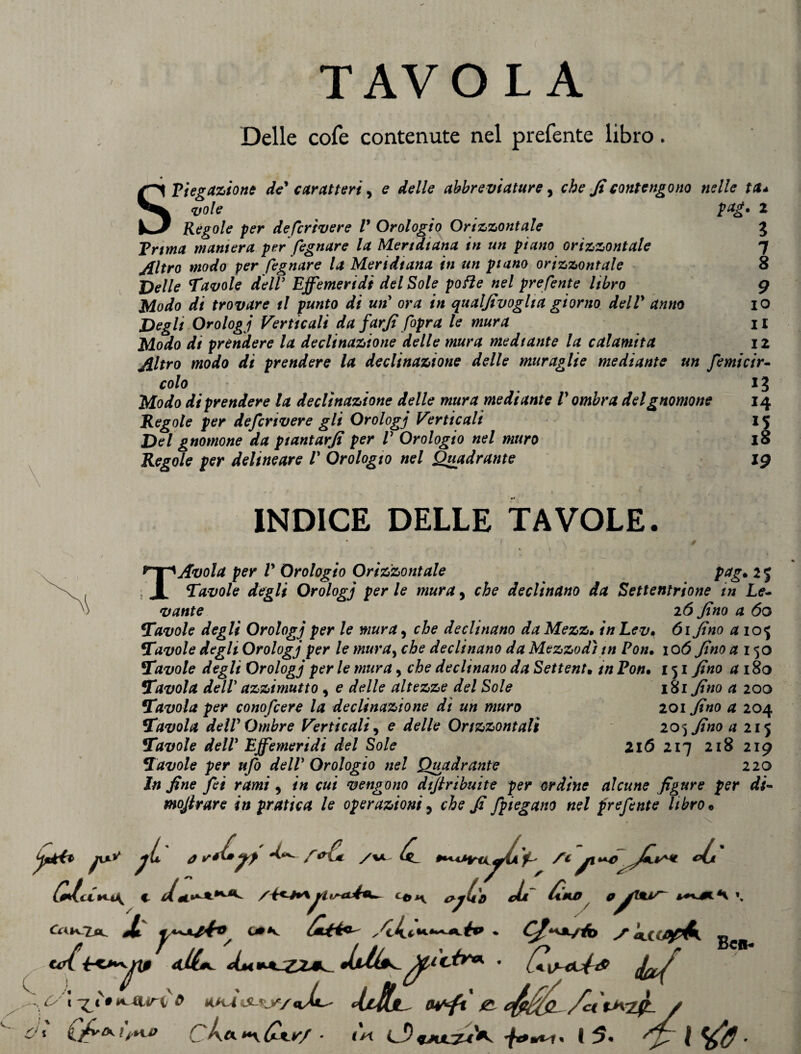 TAVOLA
Delle coſe contenute nel preſente libro.
SPiegazione de' caratteri, e delle abbreviature, che ſi contengono nelle ta-
vole pag. 2
Regole per deſcrivere l' Orologio Orizzontale 3
Prima maniera per ſegnare la Meridiana in un piano orizzontale 7
Altro modo per ſegnare la Meridiana in un piano orizzontale 8
Delle Tavole dell' Effemeridi del Sole poſte nel preſente libro 9
Modo di trovare il punto di un' ora in qualſivoglia giorno dell' anno 10
Degli Orologj Verticali da farſi ſopra le mura 11
Modo di prendere la declinazione delle mura mediante la calamita 12
Altro modo di prendere la declinazione delle muraglie mediante un ſemicir-
colo 13
Modo di prendere la declinazione delle mura mediante l' ombra del gnomone 14
Regole per deſcrivere gli Orologj Verticali 15
Del gnomone da piantarſi per l' Orologio nel muro 18
Regole per delineare l' Orologio nel Quadrante 19
INDICE DELLE TAVOLE.
TAvola per l' Orologio Orizzontale pag. 25
Tavole degli Orologj per le mura, che declinano da Settentrione in Le-
vante 26 fino a 60
Tavole degli Orologj per le mura, che declinano da Mezz. in Lev. 61 fino a 105
Tavole degli Orologj per le mura, che declinano da Mezzodì in Pon. 106 fino a 150
Tavole degli Orologj per le mura, che declinano da Settent. in Pon. 151 fino a 180
Tavola dell' azzimutto, e delle altezze del Sole 181 fino a 200
Tavola per conoſcere la declinazione di un muro 201 fino a 204
Tavola dell' Ombre Verticali, e delle Orizzontali 205 fino a 215
Tavole dell' Effemeridi del Sole 216 217 218 219
Tavole per uſo dell' Orologio nel Quadrante 220
In fine ſei rami, in cui vengono diſtribuite per ordine alcune figure per di-
moſtrare in pratica le operazioni, che ſi ſpiegano nel preſente libro.
di
Calcina e con oglio di Lino o pure
con
Ben-
col tempo alla durezza della pietra.
delle
di Chambers. in Venezia 15.